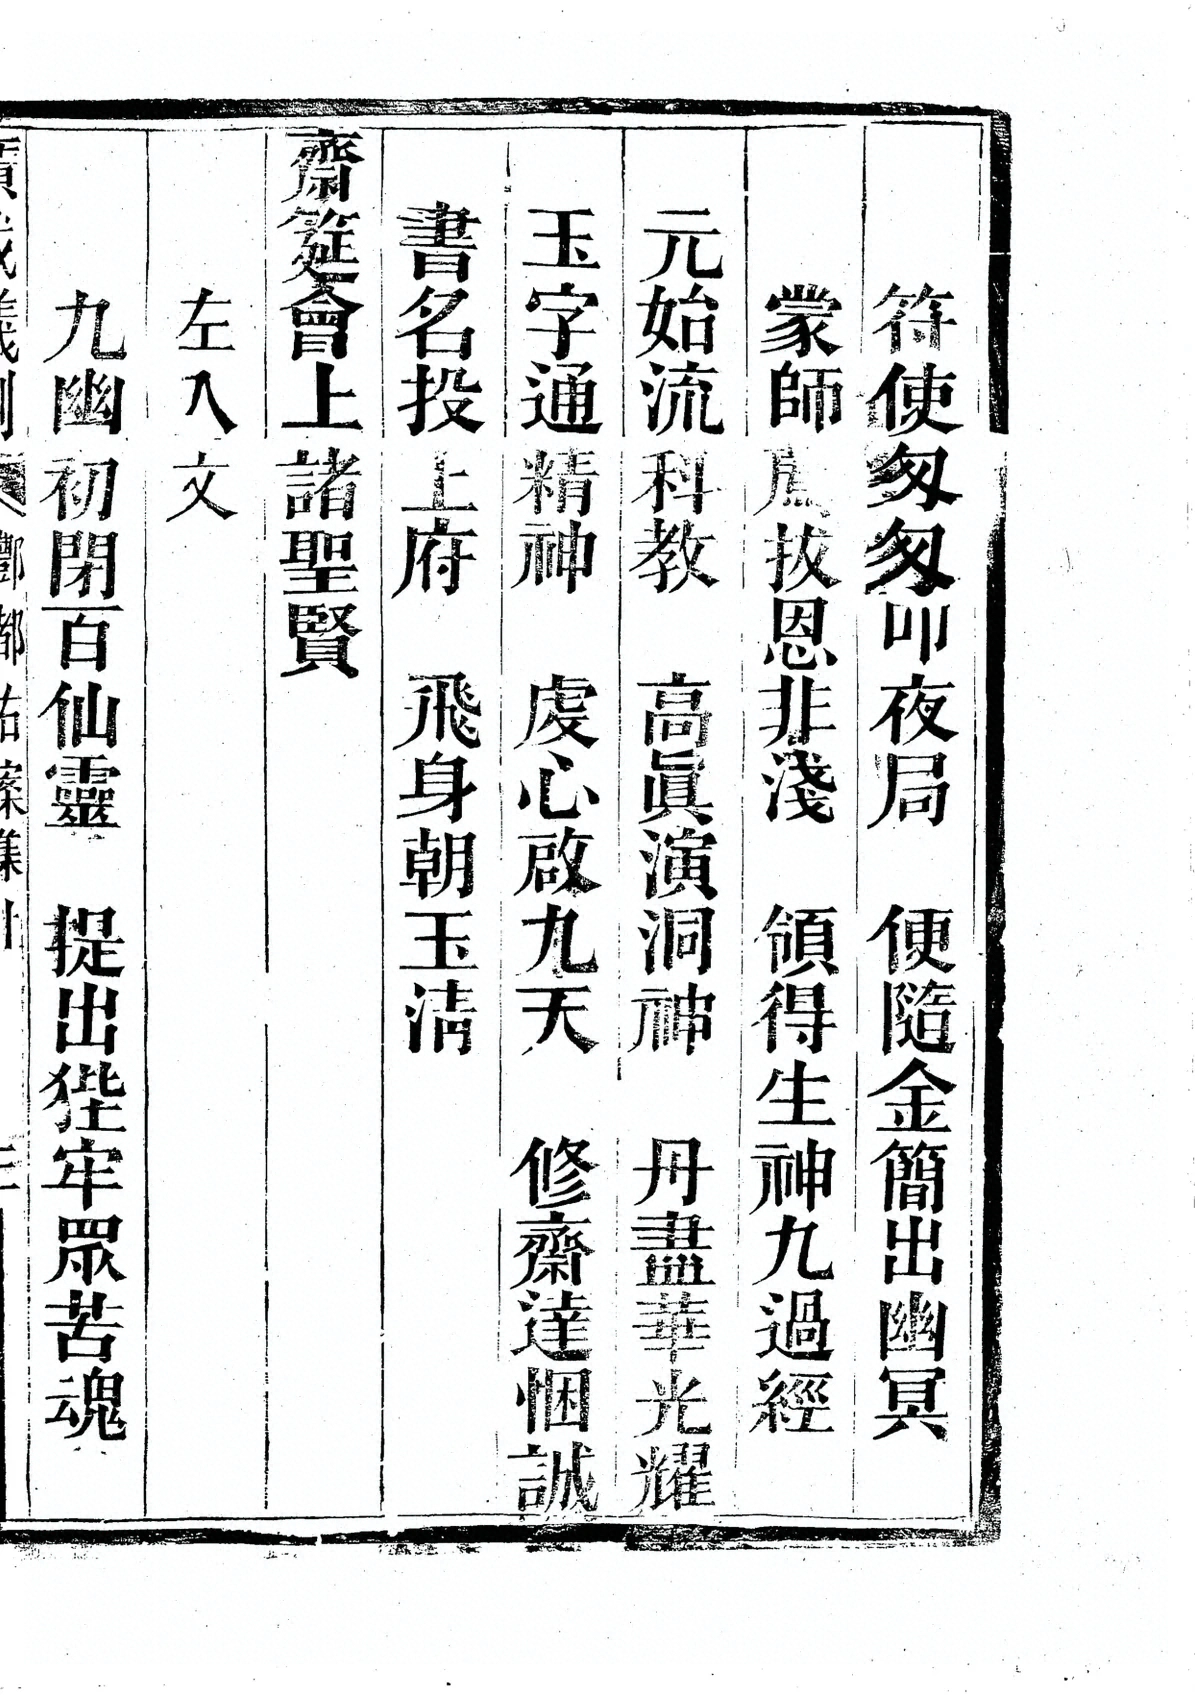 符使匆匆叩夜局　便隨金簡出幽冥
蒙師薦拔恩非淺　領得生神九過經
元始流科教　高眞演洞神　丹盡華光耀
玉字通精神　虔心啟九天　修齋達悃誠
書名投上府　飛身朝玉淸
齋筵會上諸聖賢
左入文
九幽初閉百仙靈　提出狴牢眾苦魂